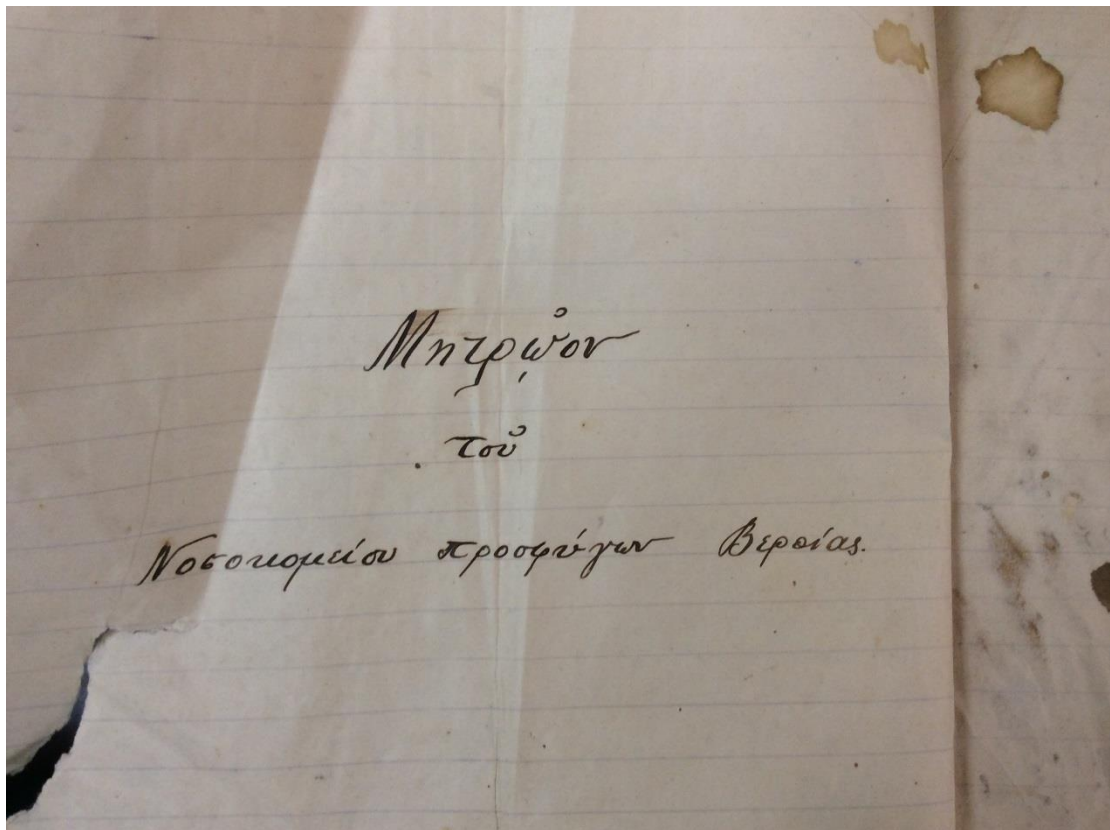 Μητρῷον
τοῦ
Νοσοκομείου προσφύγων Βεροίας.